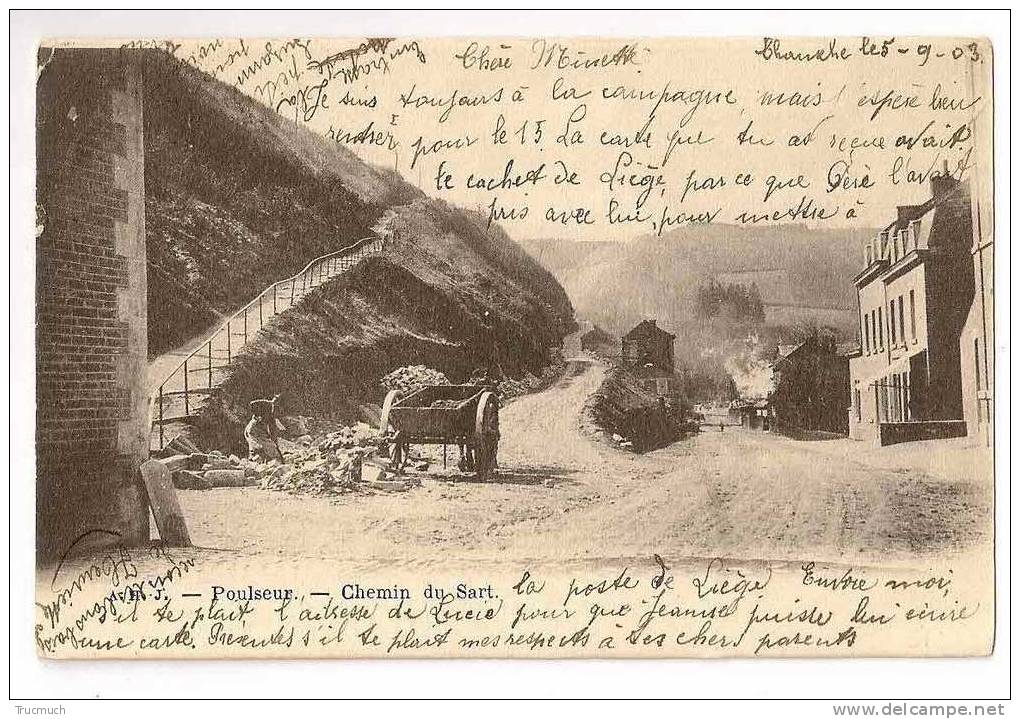 Chère Minette
Chanxhe le 5-9-03
Je suis toujours à la campagne, mais j'espère bien
rentrer pour le 15. La carte que tu as reçue avait
le cachet de Liège, parce que Père l'avait
pris avec lui, pour mettre à
la poste de Liège. Envoie moi,
J. — Poulseur. — Chemin du Sart.
s'il te plait, l'adresse de Lucie pour que Jeanne puisse lui écrire
une carte. Présentes s'il te plait mes respects à tes chers parents
Trucmuch
www.delcampe.net